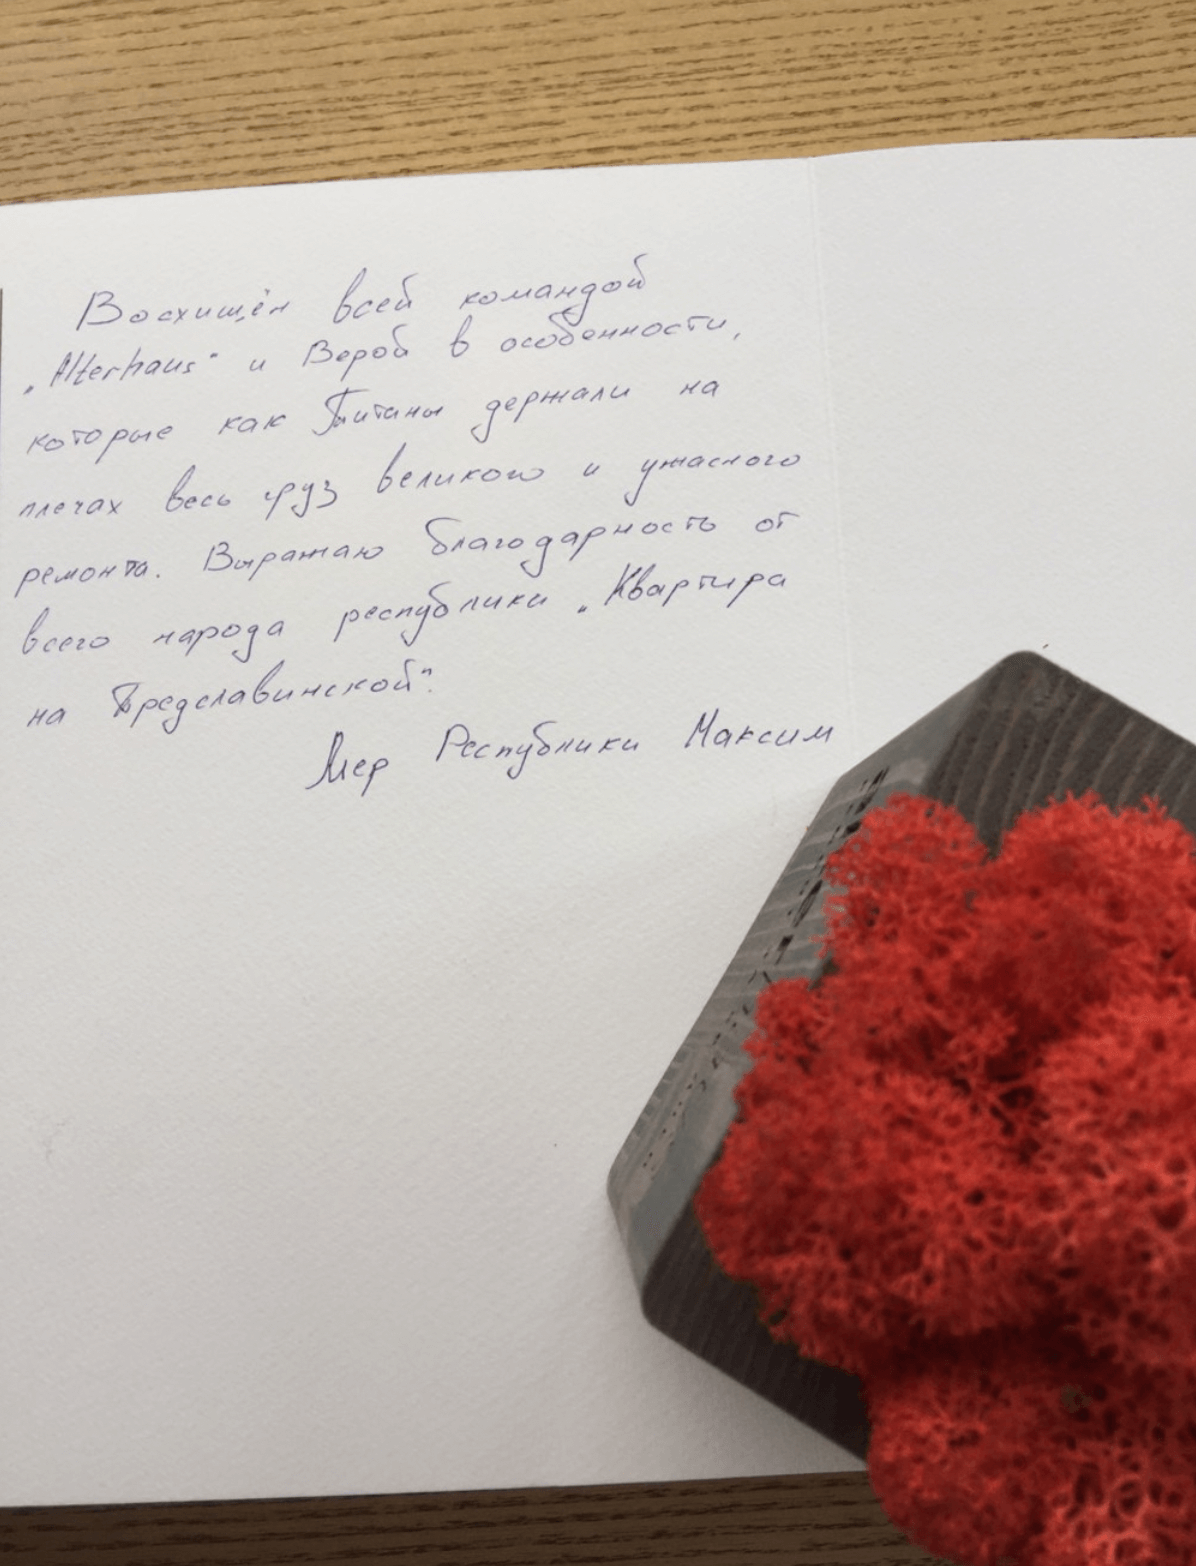 Восхищён всей командой
„Alterhaus" и Верой в особенности,
которые как Титаны держали на
плечах весь груз великого и ужасного
ремонта. Выражаю благодарность от
всего народа республики „Квартира
на Предславинской".
Мер Республики Максим